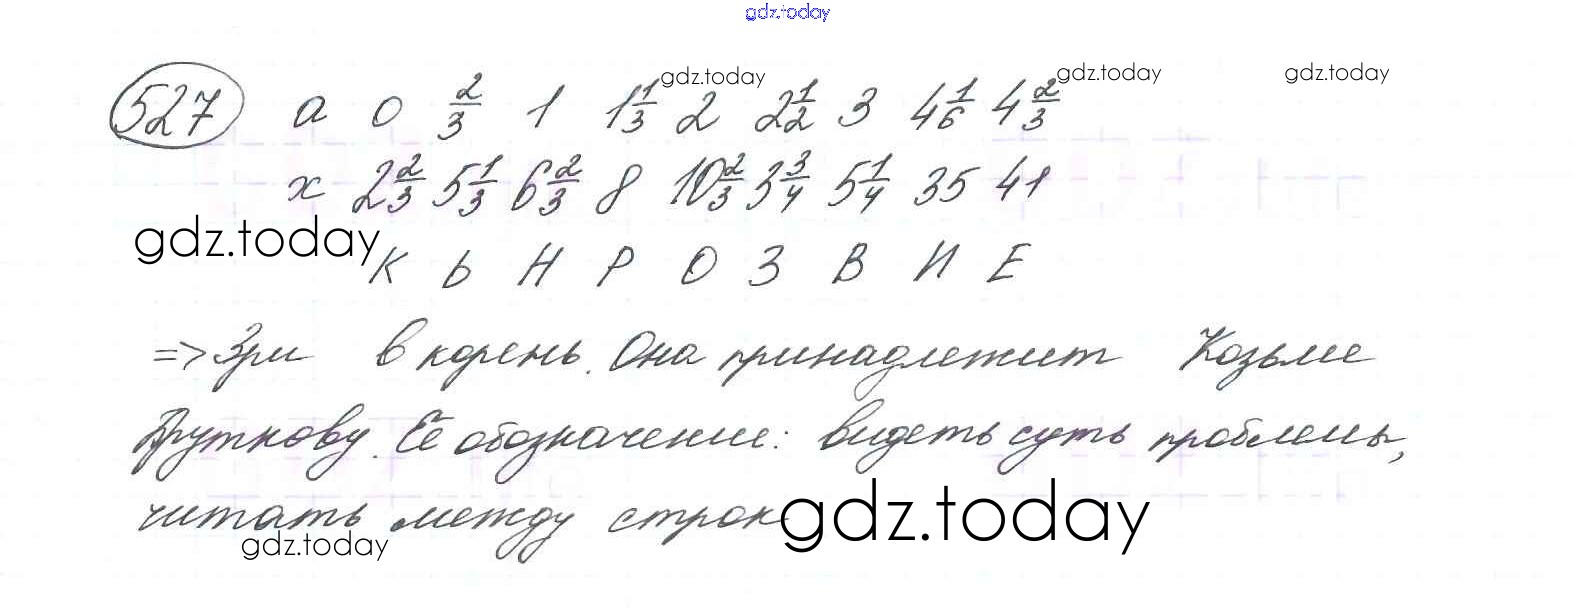 gdz.today
gdz.today gdz.today gdz.today
527 a 0 2/3 1 1 1/3 2 2 1/2 3 4 1/6 4 2/3
x 2 2/3 5 1/3 6 2/3 8 10 2/3 3 3/4 5 1/4 35 41
gdz.today
К Ь Н Р О З В И Е
=> Зри в корень. Она принадлежит Козьме
Пруткову. Её обозначение: видеть суть проблемы,
читать между строк
gdz.today
gdz.today